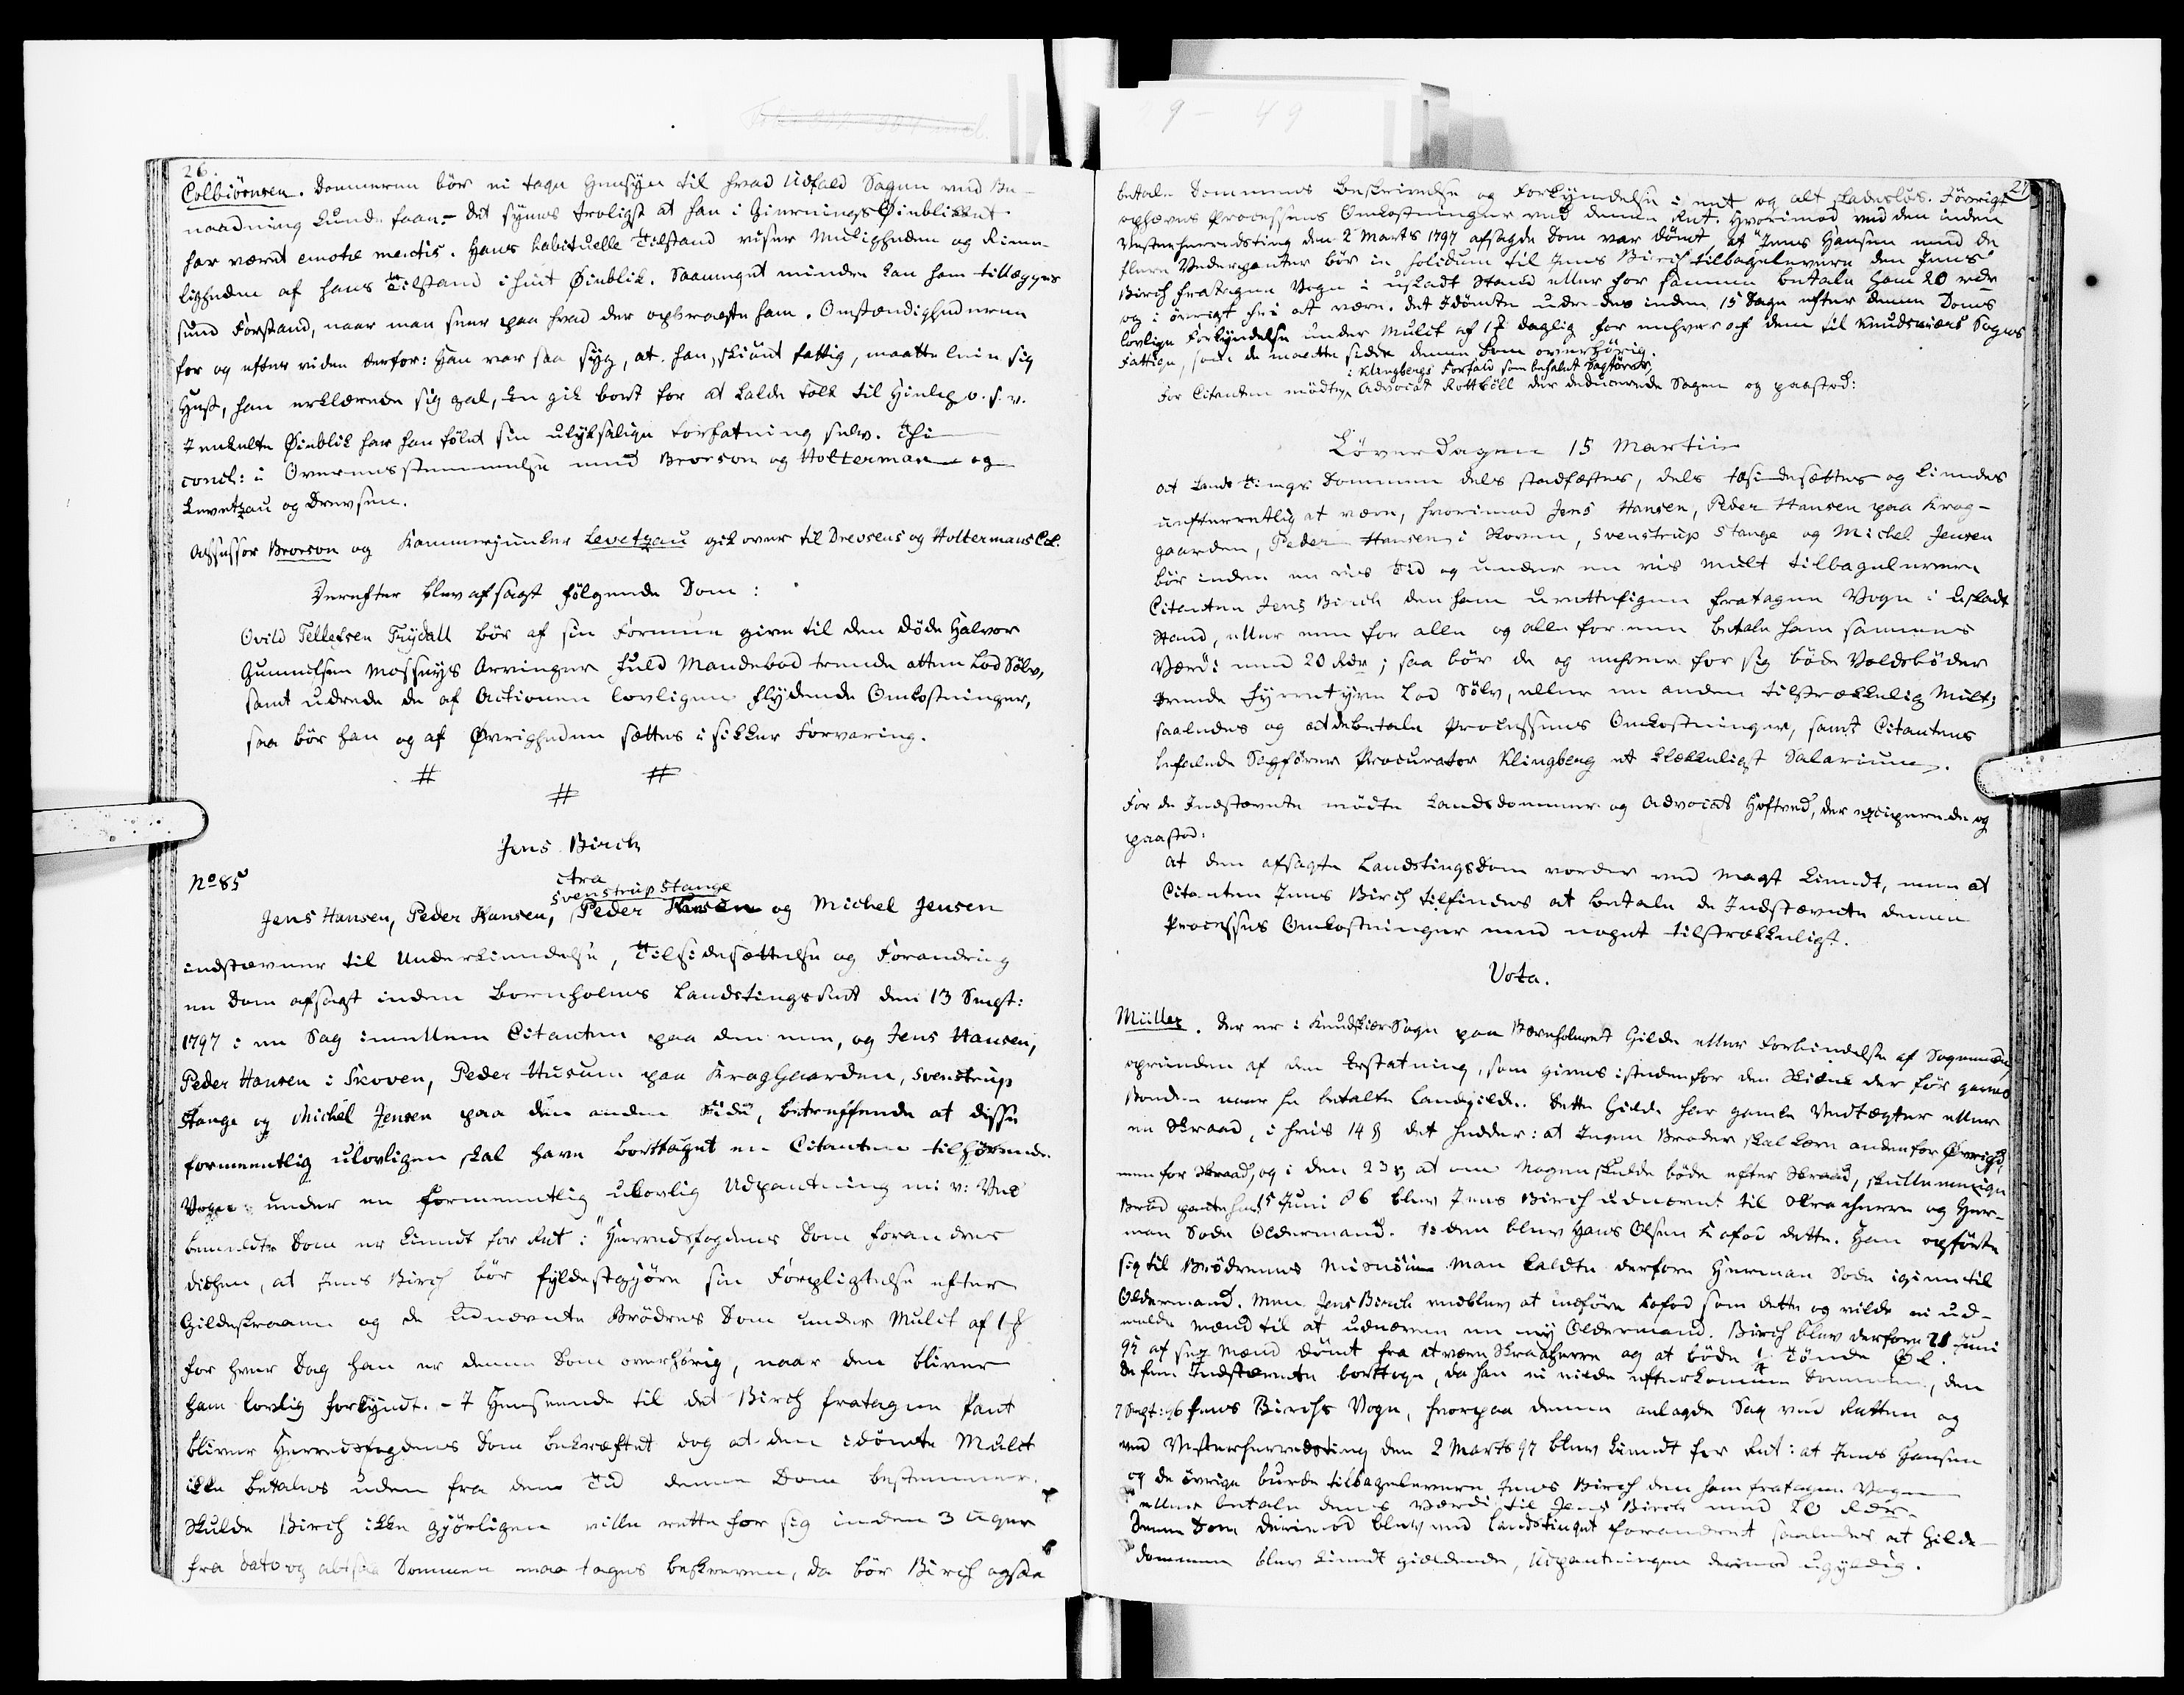 26.
Colbiörnsen. Dommeren bör ei tage Hensyn til hvad Udfald Sagen ved Be-
naadning kunde faae. - Det synes troligst at han i GierningsØieblikket
har været emotæ mentis. Hans habituelle Tilstand viser Muligheden og Rime-
ligheden af hans Tilstand i hiint Øieblik. Saameget mindre kan ham tillægges
sund Forstand, naar man seer paa hvad der opbragte ham. Omstændighederne
for og efter vidne derfor: Han var saa syg, at han, skiönt fattig, maatte leie sig
Hest, han erklærede sig gal, han gik bort for at kalde Folk til Hielp o. s. v.
I enkelte Øieblik har han fölet sin ulyksalige Forfatning selv. Thi
concl: i Overensstemmelse med Brorson og Holterman og
Levetzau og Drewsen.
Assessor Brorson og Kammerjunker Levetzau gik over til Drewsens og Holtermans Col.
Derefter blev afsagt fölgende Dom:
Ovild Tellefsen Trydall bör af sin Formue give til den döde Halvor
Gunnelsen Mosseigs Arvinger fuld Mandebod trende atten Lod Sölv,
samt udrede de af Actionen lovligen flydende Omkostninger,
saa bör han og af Øvrigheden sættes i sikker Forvaring.
# #
#
Jens Birch
No 85
ctra
Svenstrup Stange
Jens Hansen, Peder Hansen, Peder Hansen og Michel Jensen
indstævner til Underkiendelse, Tilsidesættelse og Forandring
en Dom afsagt inden Bornholms Landstingsret den 13 Sept:
1797 i en Sag imellem Citanten paa den ene, og Jens Hansen,
Peder Hansen i Skoven, Peder Husum paa KragGaarden, Svenstrup
Stange og Michel Jensen paa den anden Side, betreffende at disse
formeentlig ulovligen skal have borttaget en Citanten tilhörende
Vogn under en formeentlig ulovlig Udpantning m: v: Ved
bemeldte Dom er kiendt for Ret: "Herredsfogdens Dom forandres
dithen, at Jens Birch bör fyldestgjöre sin Forpligtelse efter
Gildeskraaen og de udnævnte Brödres Dom under Mulct af 1 ß
for hver Dag han er denne Dom overhörig, naar den bliver
ham lovlig forkyndt. - I Henseende til det Birch fratagne Pant
bliver Herredsfogdens Dom bekræftet dog at den idömte Mulct
ikke betales uden fra den Tid denne Dom bestemmer.
Skulde Birch ikke gjörligen ville rette for sig inden 3 Uger
fra dato og altsaa Dommen maa tages beskreven, da bör Birch ogsaa
27
betale Dommens Beskrivelse og Forkyndelse i eet og alt skadeslös. Iövrigt
ophæves Processens Omkostninger ved denne Ret. Hvorimod ved den inden
Vesterherredsting den 2 Marts 1797 afsagde Dom var dömt, at "Jens Hansen med de
flere Vederganter bör in solidum til Jens Birch tilbagelevere den Jens
Birch fratagne Vogn i uskadt Stand eller for samme betale ham 20 rdr
og i övrigt frie at være. Det Idömte udredes inden 15 Dage efter denne Doms
lovlige Forkyndelse under Mulct af 1 ß daglig for enhver af dem til Knudskiers Sogns
Fattige, som de maatte sidde denne Dom overhörig.
i Klingbergs Forfald som befalet Sagförer,
For Citanten mödte Advocat Rottböll der deducerede Sagen og paastod:
Löverdagen 15 Martii
at Lands Tings Dommen dels stadfæstes, dels tilsidesættes og kiendes
uefterretlig at være, hvorimod Jens Hansen, Peder Hansen paa Krag-
gaarden, Peder Hansen i Skoven, Svenstrup Stange og Michel Jensen
bör inden en vis Tid og under en vis Mult tilbagelevere
Citanten Jens Birch den ham uretteligen fratagne Vogn i uskadt
Stand, eller een for alle og alle for een betale ham sammes
Værdi med 20 Rdr; saa bör de og enhver for sig böde Voldsböder
trende fyrretyve Lod Sölv, eller en anden tilstrækkelig Mult;
saaledes og at debetale Processens Omkostninger, samt Citantens
befalede Sagförer Procurator Klingberg et klækkeligt Salarium.
For de Indstævnte mödte Landsdommer og Advocat Höstved, der exciperede og
paastod:
at den afsagte Landstingsdom vorder ved Magt kiendt, men at
Citanten Jens Birch tilfindes at betale de Indstævnte denne
Processes Omkostninger med noget tilstrækkeligt.
Vota.
Müller. Der er i Knudskier Sogn paa Bornholm et Gilde eller Forbindelse af Sognemænd,
oprunden af den Erstatning, som gives istedenfor den Skienk der för gaves
Bonden naar han betalte Landgilde. Dette Gilde har gamle Vedtægter eller
en Skraae, i hvis 14 § det hedder: at Ingen Broder skal kære anden for Øvrighed,
men for Skraad, og i den 23 § at om Nogen skulde böde efter Skraad, skulle menige
Bröd pante ham. 15 Juni 86 blev Jens Birch udnævnt til Skraaherre og Her-
man Sode Oldermand. Siden blev Hans Olsen Kofod dette. Han opförte
sig til Brödrenes Misnöie. Man kaldte derfore Herman Sode igien til
Oldermand. Men Jens Birch vedblev at indföre Kofod som dette og vilde ei ud-
melde Mænd til at udnævne en ny Oldermand. Birch blev derfore 21 Juni
95 af sex Mænd dömt fra at være Skraaherre og at böde 1/2 Tönde Øl.
De fem Indstævnte borttoge, da han ei vilde efterkomme Dommen, den
7 Sept: 96 Jens Birchs Vogn, hvorpaa denne anlagde Sag ved Retten og
ved Vesterherredsting den 2 Marts 97 blev kiendt for Ret: at Jens Hansen
og de övrige burde tilbagelevere Jens Birch den ham fratagne Vogn
eller betale dens Værdi til Jens Birch med 20 Rdr.
Denne Dom derimod blev ved Landstinget forandret saaledes at Gilde-
dommen blev kiendt gieldende, Udpantningen derimod ugyldig.